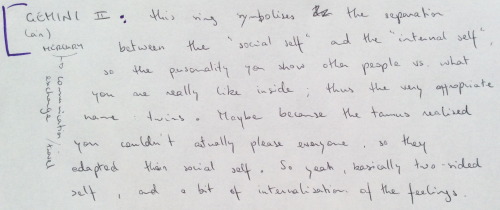 GEMINI II : this ring symbolises the separation
(air)
MERCURY between the "social self" and the "internal self",
so the personality you show other people vs. what
you are really like inside; thus the very appropriate
name: twins. Maybe because the taurus realised
you couldn't actually please everyone, so they
adapted their social self. So yeah, basically two-sided
self, and a bit of internalisation of the feelings.
communication /
exchange / travel